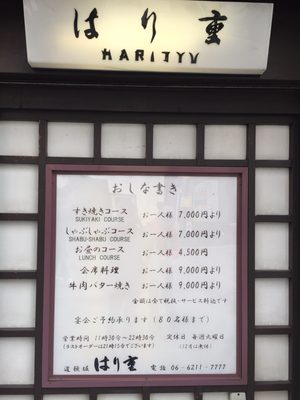 はり重
HARIJYU
おしな書き
すき焼きコース お一人様 7,000円より
SUKIYAKI COURSE
しゃぶしゃぶコース お一人様 7,000円より
SHABU-SHABU COURSE
お昼のコース お一人様 4,500円
LUNCH COURSE
会席料理 お一人様 9,000円より
牛肉バター焼き お一人様 9,000円より
金額は全て税抜・サービス料込です
宴会ご予約承ります(80名様まで)
営業時間 11時30分〜22時30分 定休日 毎週火曜日
(ラストオーダーは21時15分でございます) (12月は無休)
道頓堀 はり重 電話 06-6211-7777